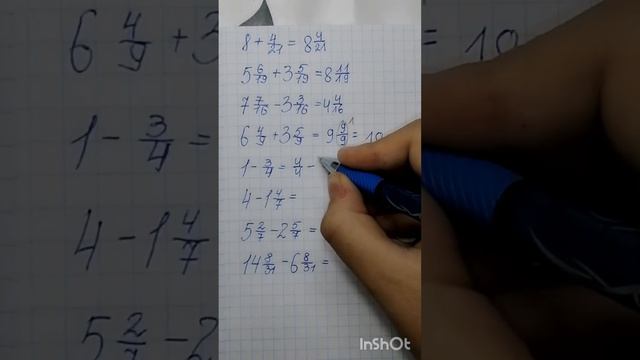 8 + 4/21 = 8 4/21
5 6/19 + 3 5/19 = 8 11/19
7 7/16 - 3 3/16 = 4 4/16
6 4/9 + 3 5/9 = 9 9/9 = 10
1 - 3/4 = 4/4 -
4 - 1 4/7 =
5 2/7 - 2 5/7 =
14 8/31 - 6 8/31 =
InShOt